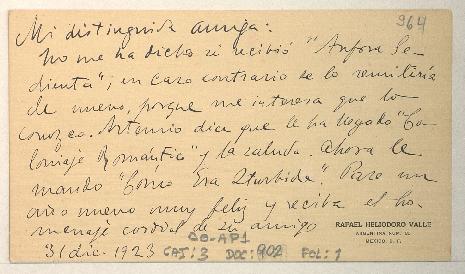 964
Mi distinguida amiga:
No me ha dicho si recibió "Anfora Se-
dienta"; en caso contrario se lo remitiría
de nuevo, porque me interesa que lo
conozca. Artemio dice que le ha llegado "Co-
loniaje Romántico" y la saluda. Ahora le
mando "Cómo Era Iturbide". Pase un
año nuevo muy feliz y reciba el ho-
menaje cordial de su amigo
RAFAEL HELIODORO VALLE
ARGENTINA NUM.
MEXICO, D. F.
31 dic. 1923
CAJ: 3 DOC: 902 FOL: 1